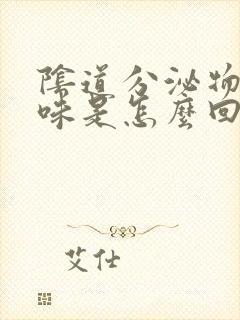 陰道分泌物
味是怎麼回
艾仕